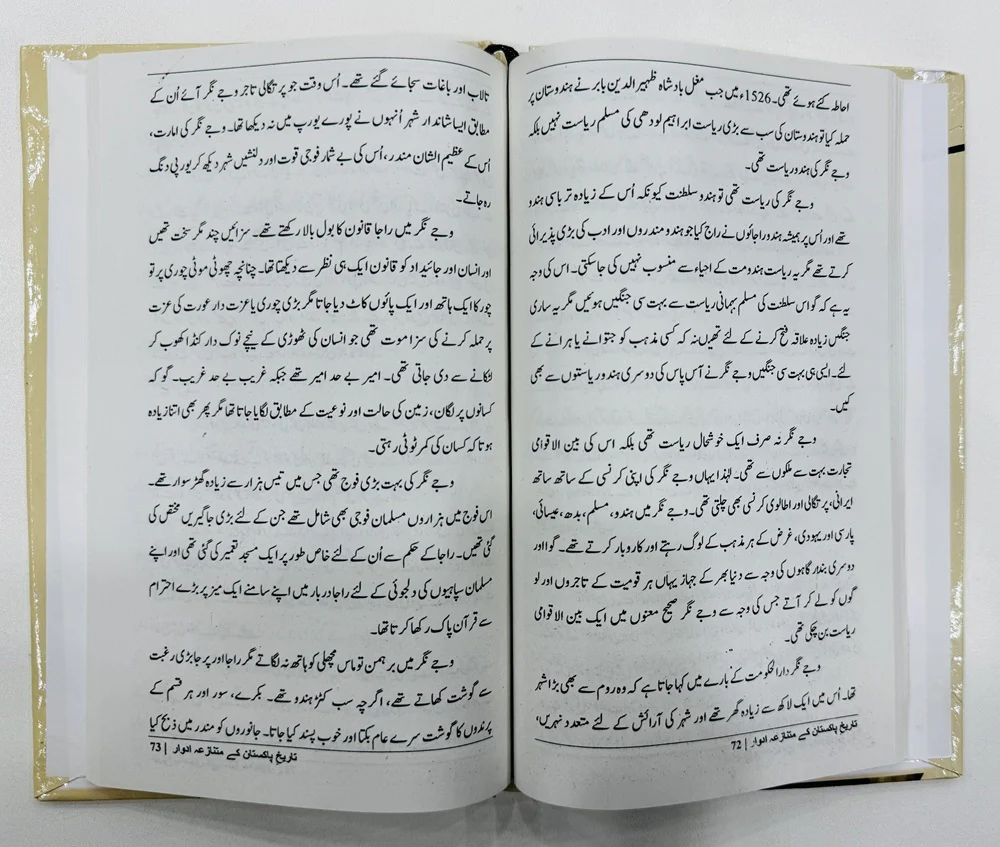 احاطہ کئے ہوئے تھی۔ 1526ء میں جب مغل بادشاہ ظہیر الدین بابر نے ہندوستان پر
حملہ کیا تو ہندوستان کی سب سے بڑی ریاست ابراہیم لودھی کی مسلم ریاست نہیں بلکہ
وجے نگر کی ہندو ریاست تھی۔
وجے نگر کی ریاست تھی تو ہندو سلطنت کیونکہ اُس کے زیادہ تر باسی ہندو
تھے اور اُس پر ہمیشہ ہندو راجائوں نے راج کیا جو ہندو مندروں اور ادب کی بڑی پذیرائی
کرتے تھے مگر یہ ریاست ہندومت کے احیاء سے منسوب نہیں کی جاسکتی۔ اس کی وجہ
یہ ہے کہ گو اس سلطنت کی مسلم بہمانی ریاست سے بہت سی جنگیں ہوئیں مگر یہ ساری
جنگیں زیادہ علاقہ فتح کرنے کے لئے تھیں نہ کہ کسی مذہب کو جتوانے یا ہرانے کے
لئے۔ ایسی ہی بہت سی جنگیں وجے نگر نے آس پاس کی دوسری ہندو ریاستوں سے بھی
کیں۔
وجے نگر نہ صرف ایک خوشحال ریاست تھی بلکہ اس کی بین الاقوامی
تجارت بہت سے ملکوں سے تھی۔ لہٰذا یہاں وجے نگر کی اپنی کرنسی کے ساتھ ساتھ
ایرانی، پرتگالی اور اطالوی کرنسی بھی چلتی تھی۔ وجے نگر میں ہندو، مسلم، بدھ، عیسائی،
پارسی اور یہودی، غرض کے ہر مذہب کے لوگ رہتے اور کاروبار کرتے تھے۔ گوا اور
دوسری بندر گاہوں کی وجہ سے دنیا بھر کے جہاز یہاں ہر قومیت کے تاجروں اور لو
گوں کو لے کر آتے جس کی وجہ سے وجے نگر صحیح معنوں میں ایک بین الاقوامی
ریاست بن چکی تھی۔
وجے نگر دارالحکومت کے بارے میں کہا جاتا ہے کہ وہ روم سے بھی بڑا شہر
تھا۔ اُس میں ایک لاکھ سے زیادہ گھر تھے اور شہر کی آرائش کے لئے متعدد نہریں،
تاریخ پاکستان کے متنازعہ ادوار | 72
تالاب اور باغات سجائے گئے تھے۔ اُس وقت جو پرتگالی تاجر وجے نگر آئے اُن کے
مطابق ایسا شاندار شہر اُنہوں نے پورے یورپ میں نہ دیکھا تھا۔ وجے نگر کی امارت،
اُس کے عظیم الشان مندر، اُس کی بے شمار فوجی قوت اور دلنشیں شہر دیکھ کر یورپی دنگ
رہ جاتے۔
وجے نگر میں راجا قانون کا بول بالا رکھتے تھے۔ سزائیں چند مگر سخت تھیں
اور انسان اور جائیداد کو قانون ایک ہی نظر سے دیکھتا تھا۔ چنانچہ چھوٹی موٹی چوری پر تو
چور کا ایک ہاتھ اور ایک پائوں کاٹ دیا جاتا مگر بڑی چوری یا عزت دار عورت کی عزت
پر حملہ کرنے کی سزا موت تھی جو انسان کی ٹھوڑی کے نیچے نوک دار کنڈا کھوب کر
لٹکانے سے دی جاتی تھی۔ امیر بے حد امیر تھے جبکہ غریب بے حد غریب۔ گو کہ
کسانوں پر لگان، زمین کی حالت اور نوعیت کے مطابق لگایا جاتا تھا مگر پھر بھی اتنا زیادہ
ہوتا کہ کسان کی کمر ٹوٹی رہتی۔
وجے نگر کی بہت بڑی فوج تھی جس میں تیس ہزار سے زیادہ گھڑ سوار تھے۔
اس فوج میں ہزاروں مسلمان فوجی بھی شامل تھے جن کے لئے بڑی جاگیریں مختص کی
گئی تھیں۔ راجا کے حکم سے اُن کے لئے خاص طور پر ایک مسجد تعمیر کی گئی تھی اور اپنے
مسلمان سپاہیوں کی دلجوئی کے لئے راجا دربار میں اپنے سامنے ایک میز پر بڑے احترام
سے قرآن پاک رکھا کرتا تھا۔
وجے نگر میں برہمن تو ماس مچھلی کو ہاتھ نہ لگاتے مگر راجا اور پرجا بڑی رغبت
سے گوشت کھاتے تھے، اگرچہ سب کٹڑ ہندو تھے۔ بکرے، سور اور ہر قسم کے
پرندوں کا گوشت سرے عام بکتا اور خوب پسند کیا جاتا۔ جانوروں کو مندر میں ذبح کیا
تاریخ پاکستان کے متنازعہ ادوار | 73